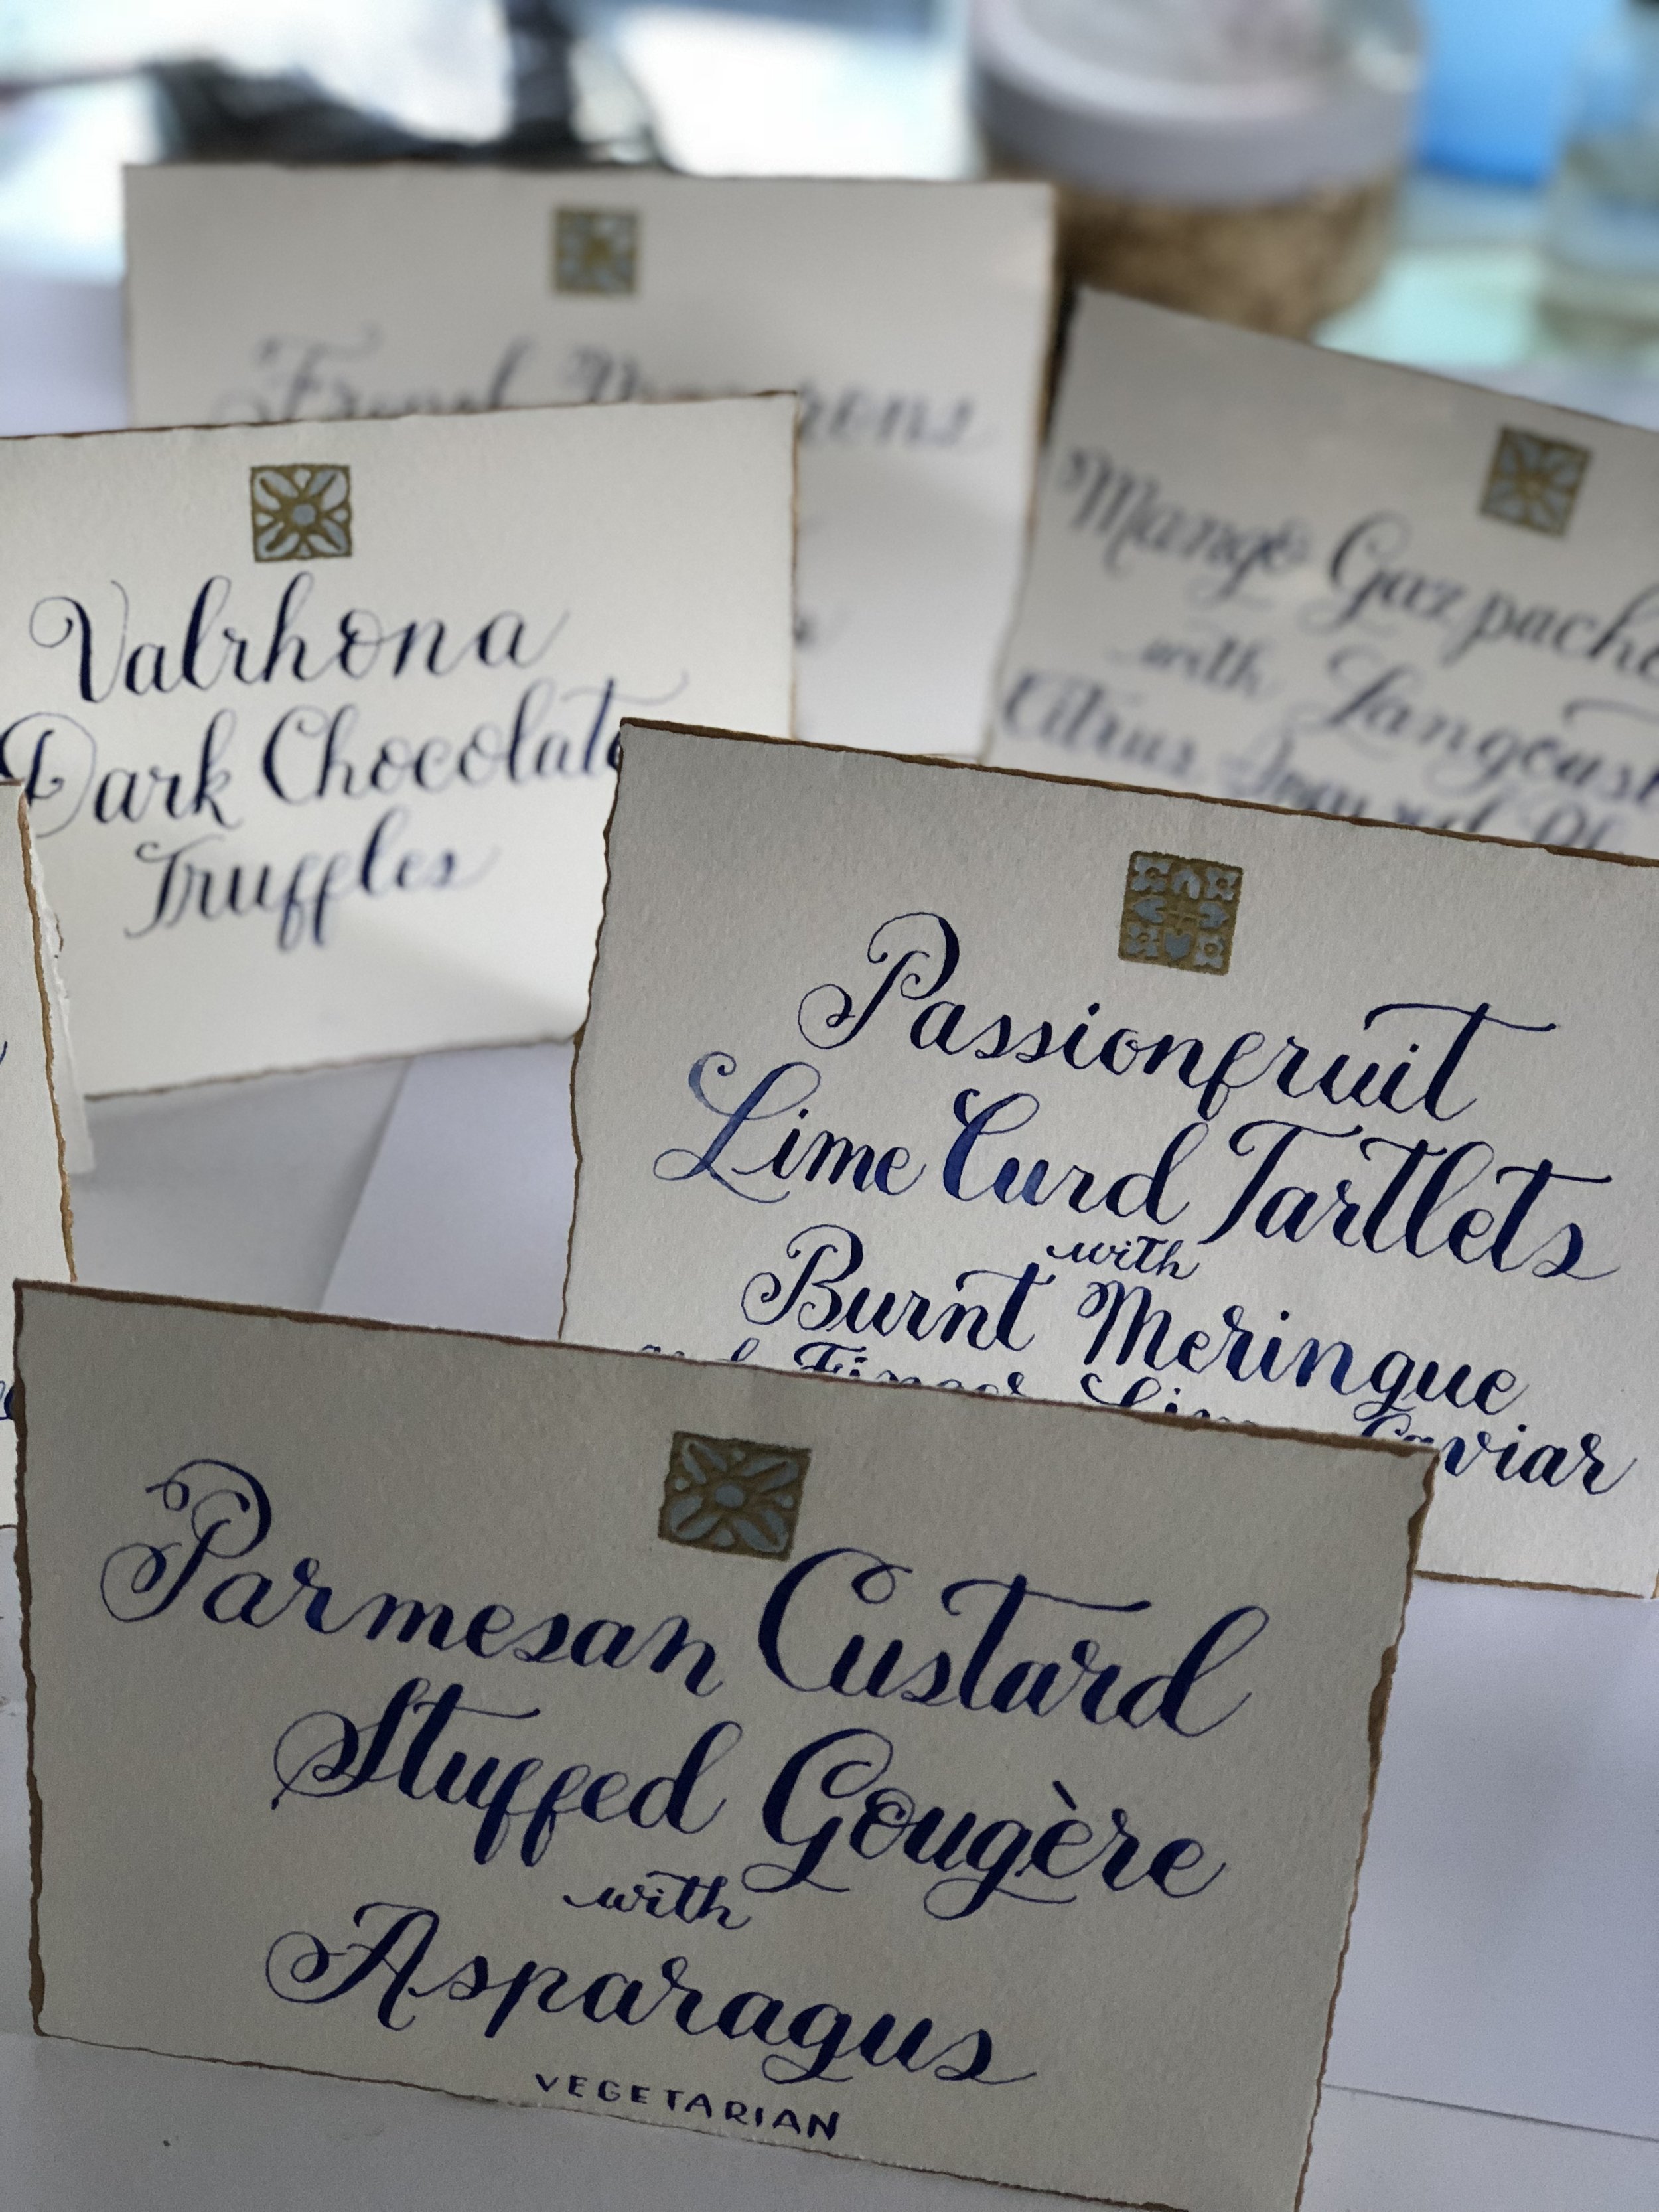 French Macarons
Valrhona
Dark Chocolate
Truffles
Mango Gazpacho
with Langoust
Citrus
Passionfruit
Lime Curd Tartlets
with
Burnt Meringue
and Finger Lime Caviar
Parmesan Custard
Stuffed Gougère
with
Asparagus
VEGETARIAN